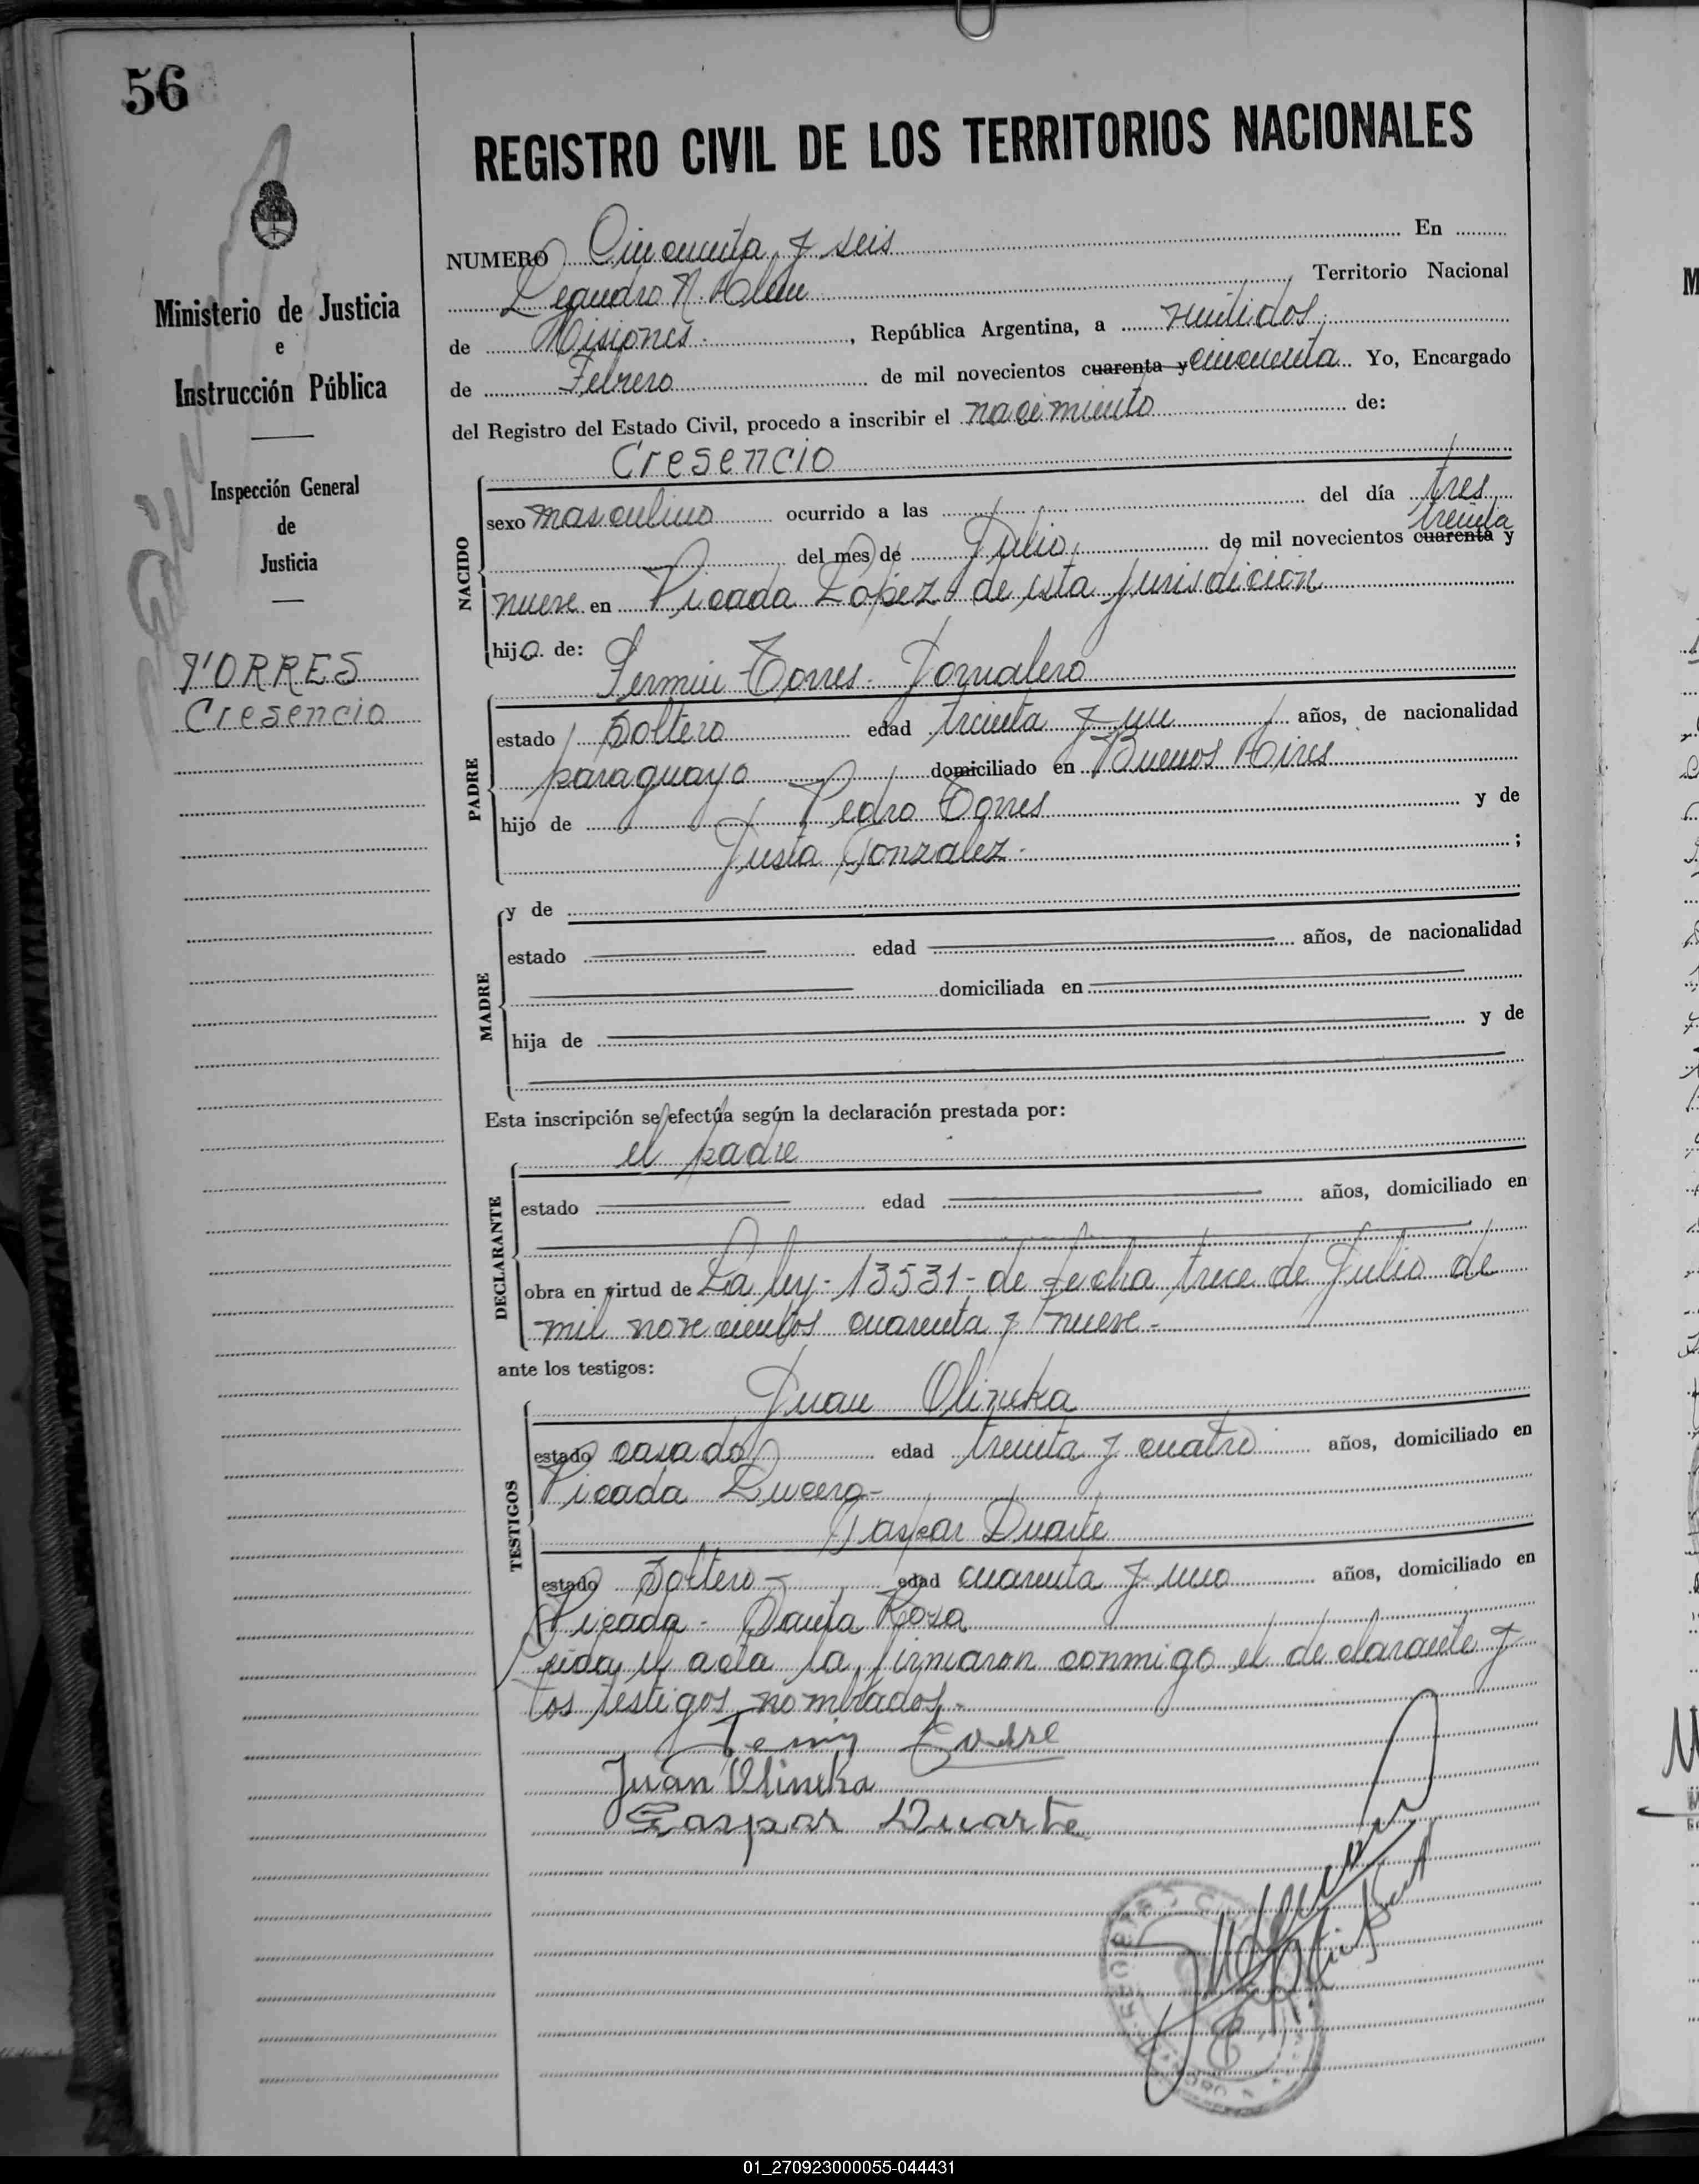 56
REGISTRO CIVIL DE LOS TERRITORIOS NACIONALES
Ministerio de Justicia
e
Instrucción Pública
Inspección General
de
Justicia
TORRES
Cresencio
NUMERO Cincuenta y seis En
Leandro N. Alem Territorio Nacional
de Misiones. , República Argentina, a veintidos,
de Febrero de mil novecientos cuarenta y cincuenta Yo, Encargado
del Registro del Estado Civil, procedo a inscribir el nacimiento de:
Cresencio
NACIDO
sexo masculino ocurrido a las del día tres
del mes de Julio, de mil novecientos cuarenta y treinta
nueve en Picada López de esta jurisdicion
hijo de:
Fermin Torres - Jornalero
PADRE
estado Soltero edad treinta y un años, de nacionalidad
paraguayo domiciliado en Buenos Aires
hijo de Pedro Torres y de
Justa Gonzalez - ;
MADRE
y de
estado edad años, de nacionalidad
domiciliada en
hija de y de
Esta inscripción se efectúa según la declaración prestada por:
el padre
DECLARANTE
estado edad años, domiciliado en
obra en virtud de La ley - 13531 - de fecha trece de Julio de
mil novecientos cuarenta y nueve -
ante los testigos:
Juan Olinuka
TESTIGOS
estado casado edad treinta y cuatro años, domiciliado en
Picada
Gaspar Duarte
estado Soltero - edad cuarenta y uno años, domiciliado en
Picada - Santa Roza
Leida el acta la firmaron conmigo el declarante y
los testigos nombrados -
Juan Olinuka
Gaspar Duarte
01_270923000055-044431